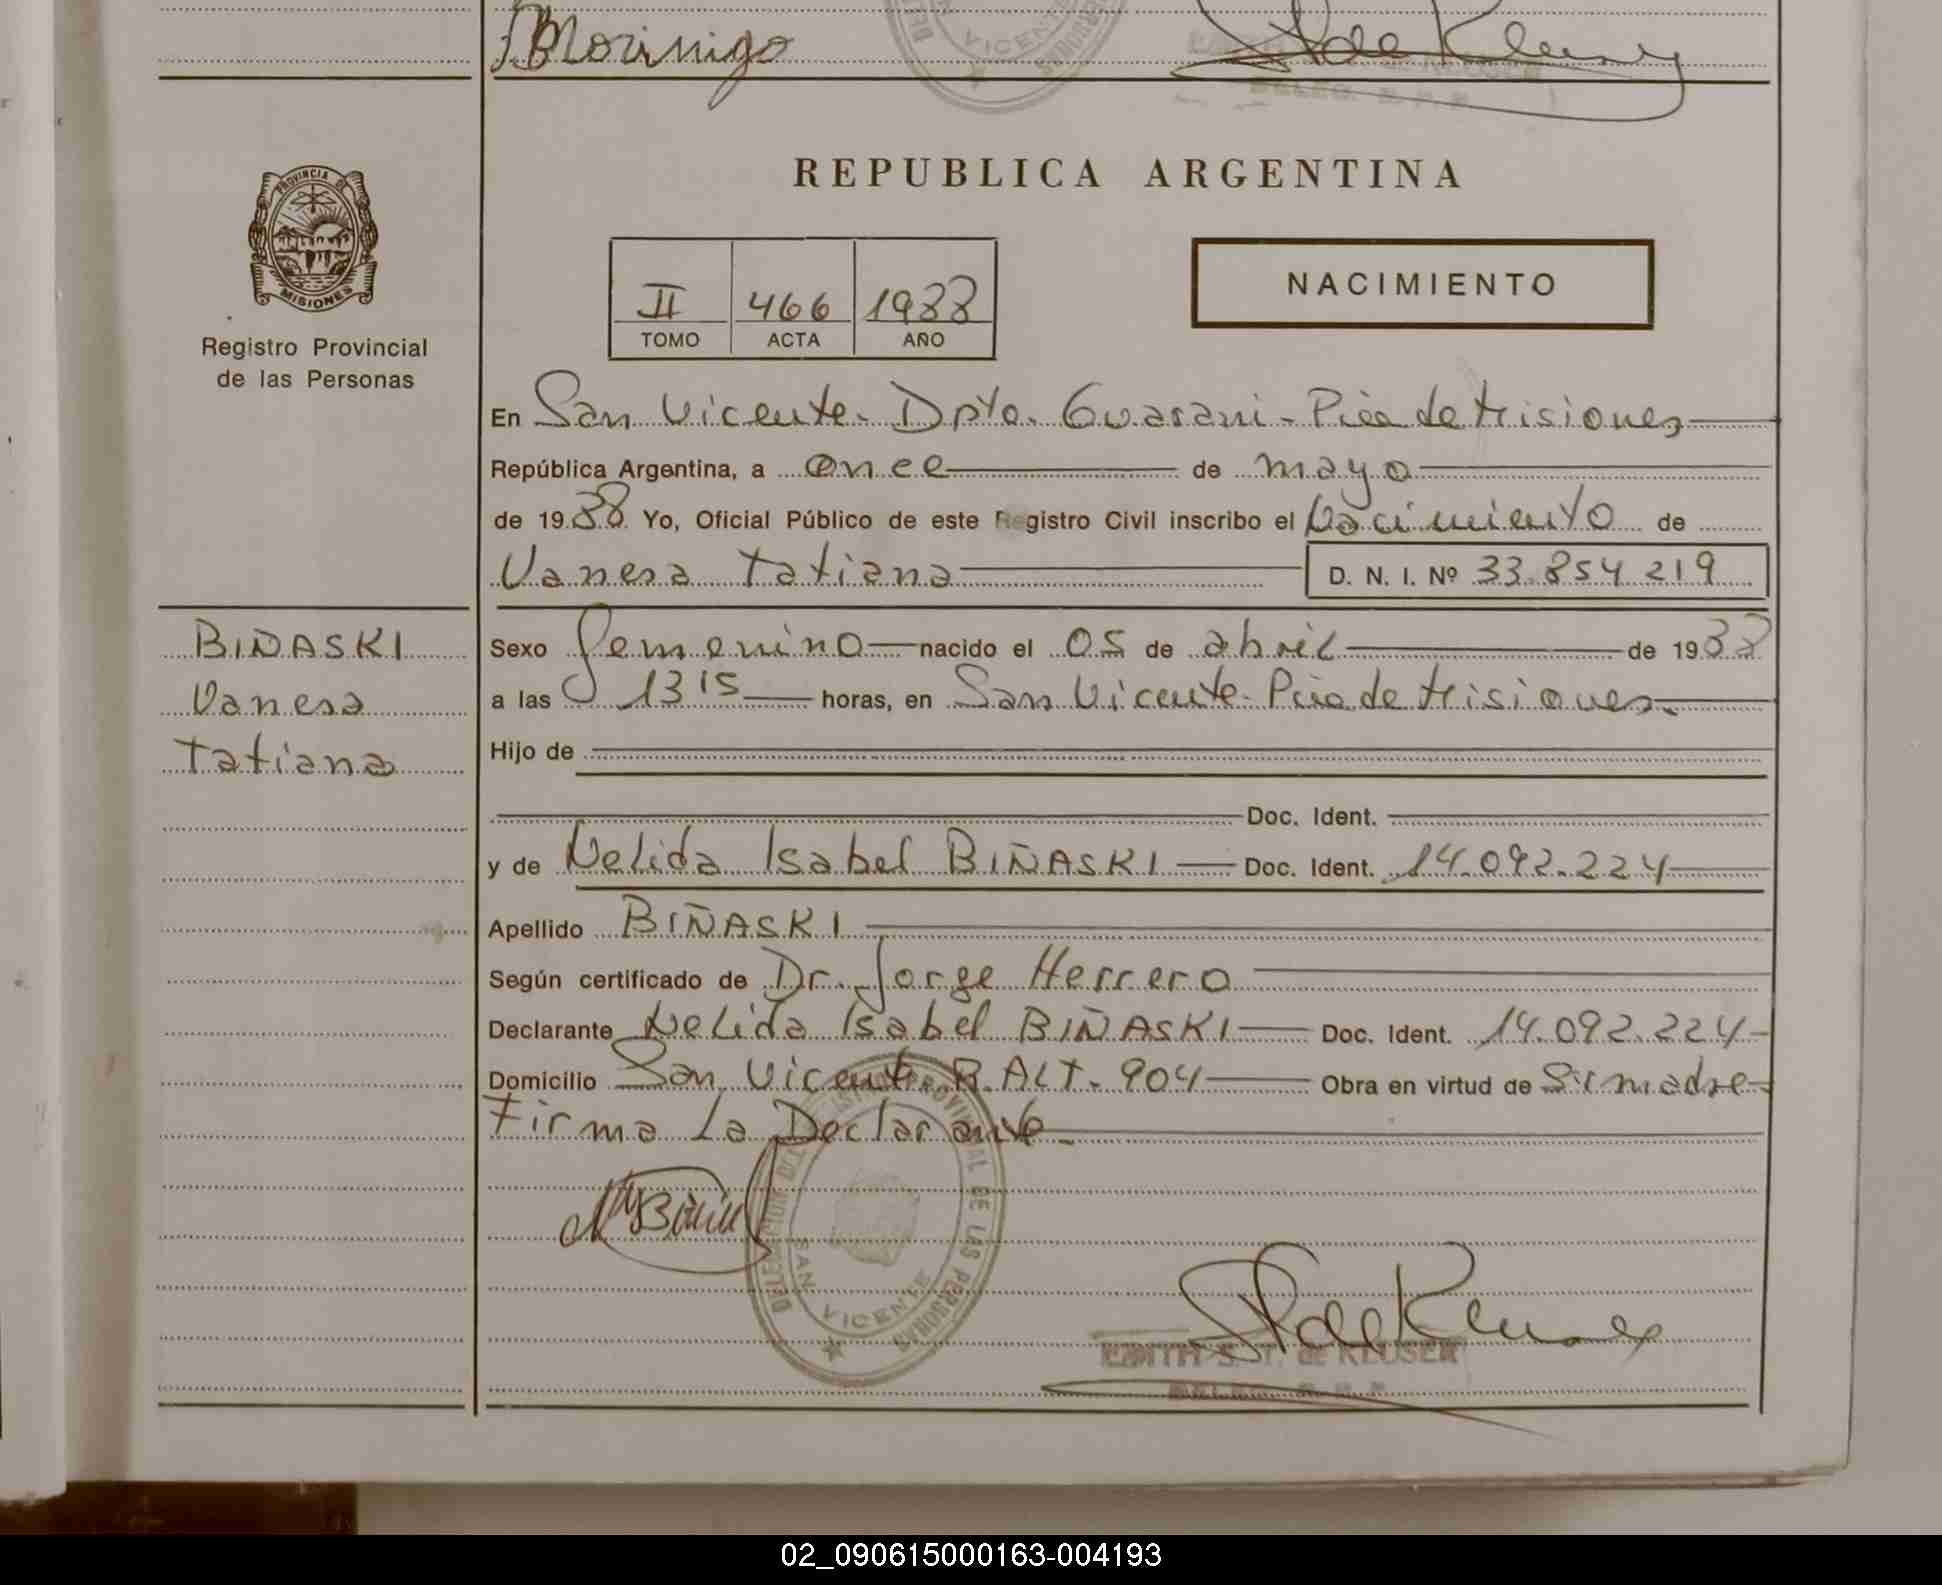 Morinigo
PROVINCIA DE
MISIONES
Registro Provincial
de las Personas
REPUBLICA ARGENTINA
II 466 1988
TOMO ACTA AÑO
NACIMIENTO
En San Vicente - Dpto. Guarani - Pcia de Misiones
República Argentina, a once de mayo
de 1988 Yo, Oficial Público de este Registro Civil inscribo el Nacimiento de
Vanesa Tatiana D. N. I. Nº 33.854.219
BIÑASKI
Vanesa
Tatiana
Sexo Femenino nacido el 05 de abril de 1988
a las 13 15 horas, en San Vicente - Pcia de Misiones.
Hijo de
Doc. Ident.
y de Nelida Isabel BIÑASKI Doc. Ident. 14.092.224
Apellido BIÑASKI
Según certificado de Dr. Jorge Herrero
Declarante Nelida Isabel BIÑASKI Doc. Ident. 14.092.224
Domicilio San Vicente B. ALT. 904 Obra en virtud de Su madre
Firma La Declarante.
DELEGACION DEL REGISTRO PROVINCIAL DE LAS PERSONAS
SAN VICENTE
EDITH S. T. de KEUSER
DELEG. R. P. P.
02_090615000163-004193